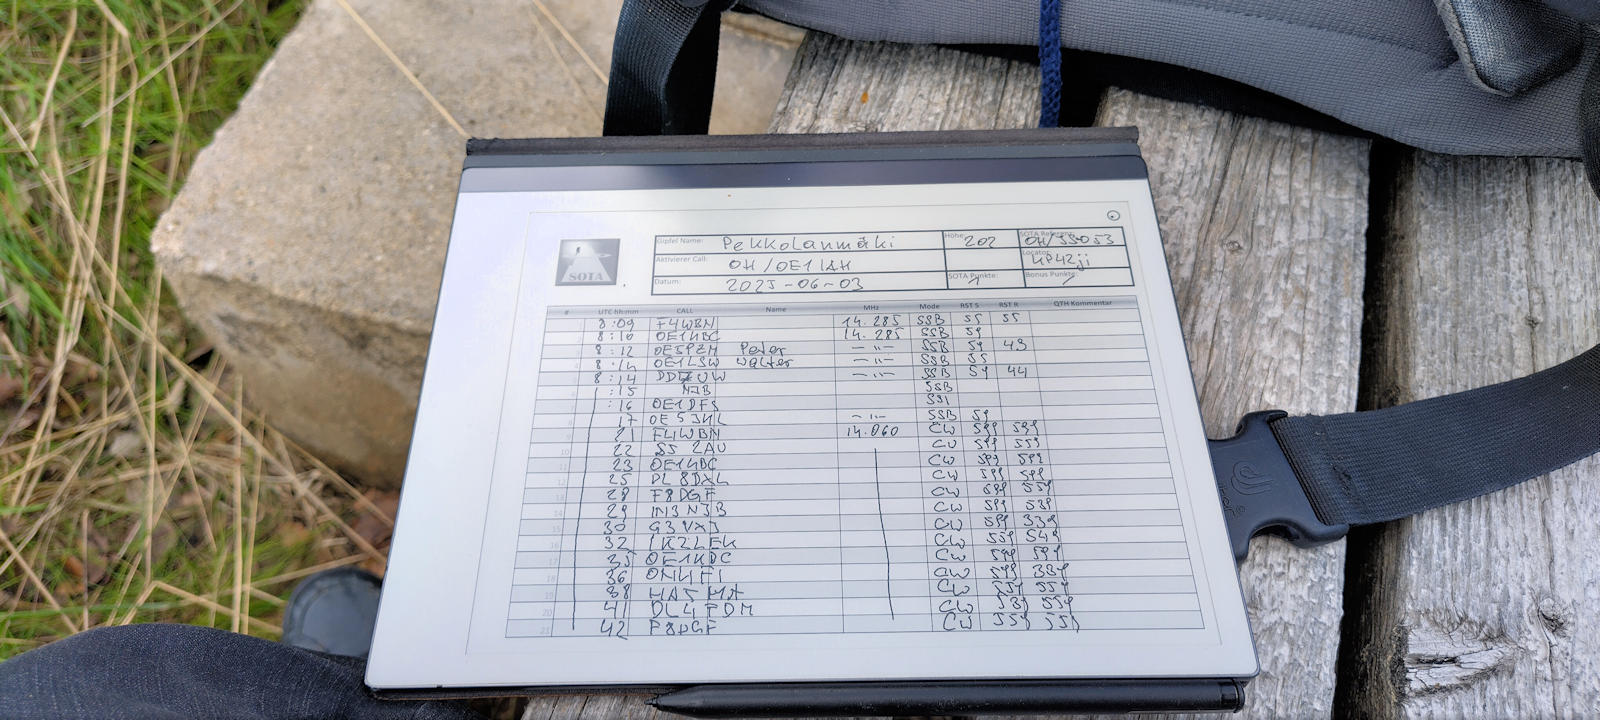 SOTA
Gipfel Name: Pekkolanmäki Höhe: 202 SOTA Referenz: OH/SS053
Aktivierer Call: OH/OE1IAH Locator: KP42ji
Datum: 2025-06-03 SOTA Punkte: 1 Bonus Punkte: /
# UTC hh:mm CALL Name MHz Mode RST S RST R QTH Kommentar
8:09 F4WBN 14.285 SSB 55 55
8:10 OE1KDC 14.285 SSB 59
8:12 Peter -"- SSB 59 43
OE1LSW Walter -"- SSB 55
8:14 -"- SSB 59 44
:15 NJB SSB
:16 OE1DFS
17 -"- SSB 59
21 F4WBN 14.060 CW 599 599
22 S52AU CW 599 559
23 OE1KDC CW 599 599
25 DL8DXL CW 599 599
28 F8DGF CW 559
29 IN3NJB CW 599 539
30 G3VXJ CW 599 339
32 IK2LEK CW 559 549
35 OE1KDC CW 599 599
36 ON4FI CW 599 339
38 HA5MA CW 559 559
41 DL4FDM CW 539 559
42 F8DGF CW 559 559